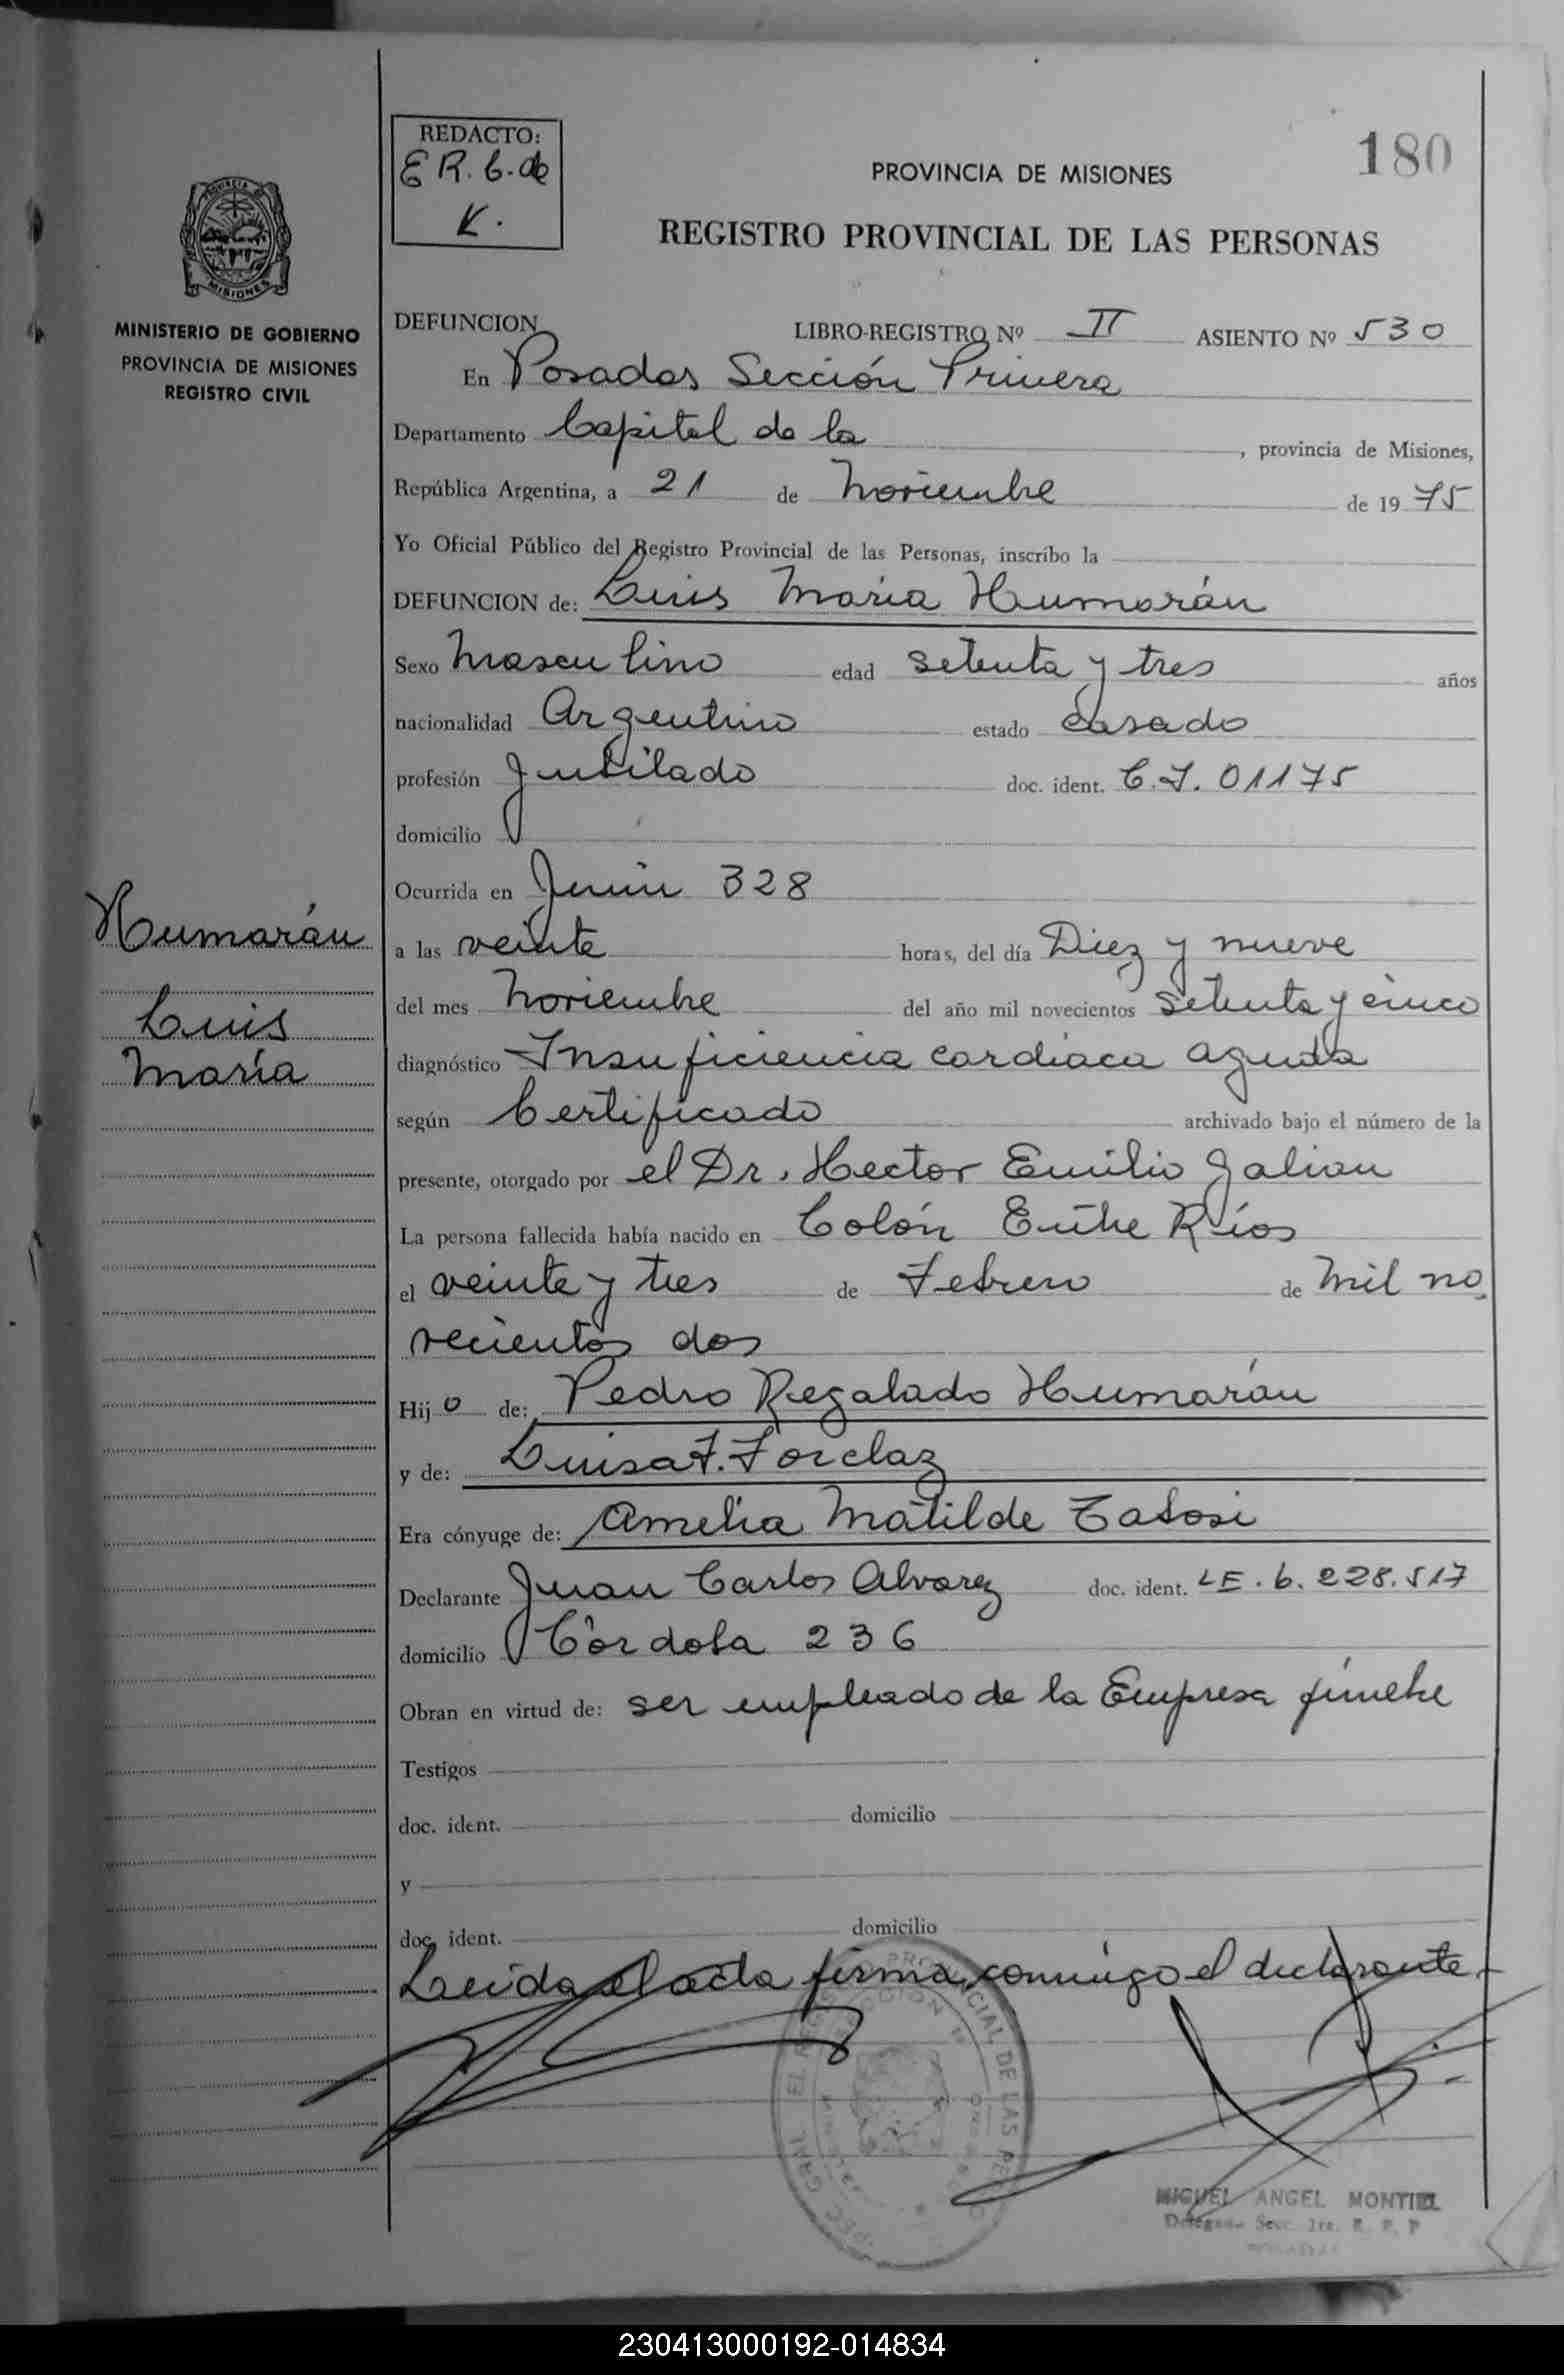 180
REDACTO:
E R. C. de
K.
PROVINCIA DE MISIONES
REGISTRO PROVINCIAL DE LAS PERSONAS
PROVINCIA DE
MISIONES
MINISTERIO DE GOBIERNO
PROVINCIA DE MISIONES
REGISTRO CIVIL
DEFUNCION LIBRO-REGISTRO Nº II ASIENTO Nº 530
En Posadas Sección Primera
Departamento Capital de la , provincia de Misiones,
República Argentina, a 21 de Noviembre de 1975
Yo Oficial Público del Registro Provincial de las Personas, inscribo la
DEFUNCION de: Luis María Humarán
Sexo Masculino edad setenta y tres años
nacionalidad Argentino estado casado
profesión Jubilado doc. ident. C.I. 01175
domicilio
Ocurrida en Junin 328
a las veinte horas, del día Diez y nueve
del mes Noviembre del año mil novecientos setenta y cinco
diagnóstico Insuficiencia cardíaca aguda
según Certificado archivado bajo el número de la
presente, otorgado por el Dr. Hector Emilio Galian
La persona fallecida había nacido en Colón Entre Ríos
el veinte y tres de Febrero de Mil no
vecientos dos
Hijo de: Pedro Regalado Humarán
y de: Luisa F. Forclaz
Era cónyuge de: Amelia Matilde Tabosi
Declarante Juan Carlos Alvarez doc. ident. LE. 6.228.517
domicilio Córdoba 236
Obran en virtud de: ser empleado de la Empresa fúnebre
Testigos
doc. ident. domicilio
y
doc. ident. domicilio
Leída el acta firma conmigo el declarante.-
Humarán
Luis
María
PROVINCIAL DE LAS
MIGUEL ANGEL MONTIEL
230413000192-014834